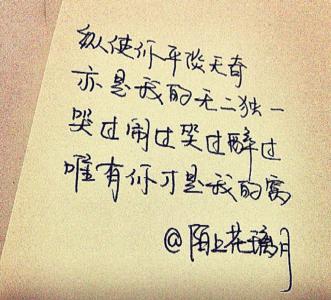 纵使你平淡无奇
亦是我的无二独一
哭过闹过笑过醉过
唯有你才是我的窝
@陌上花璃月